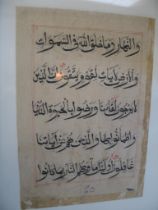 والنهار وما خلق الله في السموات
والارض لايات لقوم يتقون ان الذين
لا يرجون لقاءنا ورضوا بالحيوة الدنيا
واطمأنوا بها والذين هم عن اياتنا
غافلون اولئك مأويهم النار بما كانوا